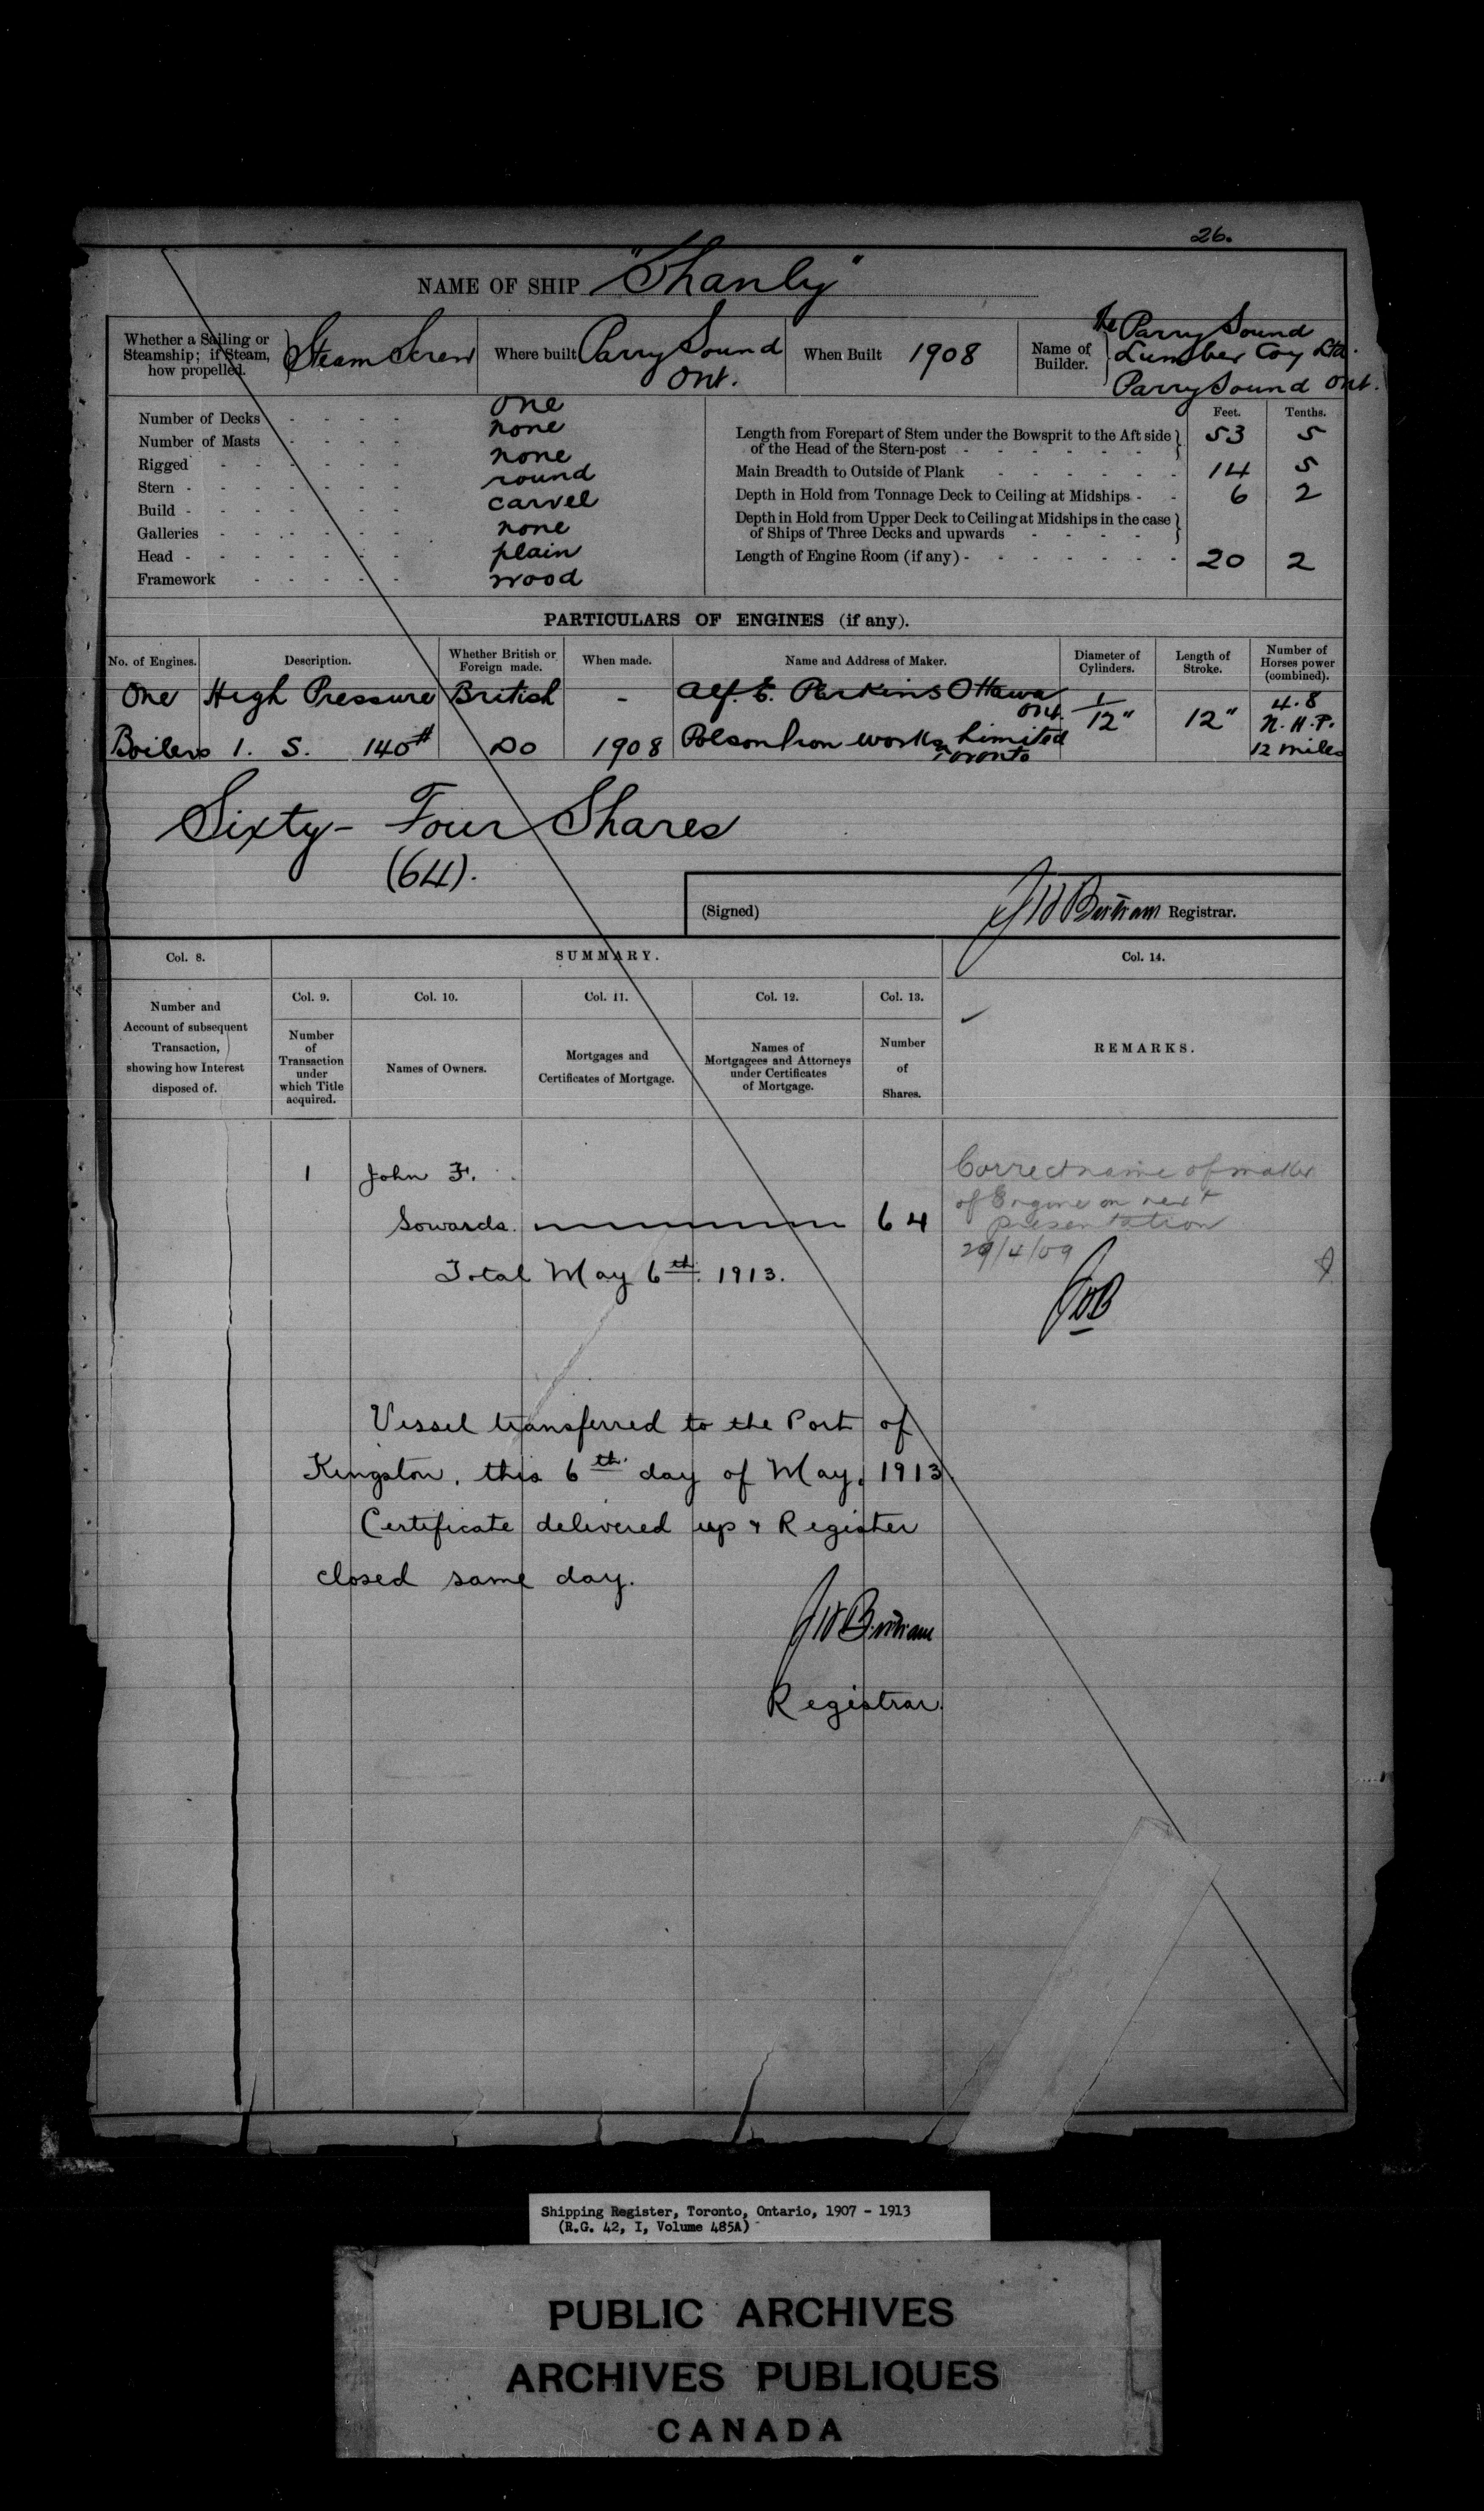 26.
NAME OF SHIP "Shanly"
Whether a Sailing or Steamship; if Steam, how propelled. Steam Screw
Where built Parry Sound Ont.
When Built 1908
Name of Builder. the Parry Sound Lumber Coy Ltd. Parry Sound Ont.
Number of Decks - - - - one
Number of Masts - - - - none
Rigged - - - - - - none
Stern - - - - - - - round
Build - - - - - - - carvel
Galleries - - - - - - none
Head - - - - - - - plain
Framework - - - - - wood
Feet. Tenths.
Length from Forepart of Stem under the Bowsprit to the Aft side of the Head of the Stern-post - - - - - - 53 5
Main Breadth to Outside of Plank - - - - - - 14 5
Depth in Hold from Tonnage Deck to Ceiling at Midships - - 6 2
Depth in Hold from Upper Deck to Ceiling at Midships in the case of Ships of Three Decks and upwards - - - -
Length of Engine Room (if any) - - - - - - - 20 2
PARTICULARS OF ENGINES (if any).
No. of Engines. Description. Whether British or Foreign made. When made. Name and Address of Maker. Diameter of Cylinders. Length of Stroke. Number of Horses power (combined).
One High Pressure British - Alf. E. Perkins Ottawa Ont. 1 12" 12" 4.8 N.H.P.
Boilers 1. S. 140# Do 1908 Polson Iron Works Limited Toronto 12 miles
Sixty-Four Shares
(64).
(Signed) Bertram Registrar.
Col. 8. SUMMARY. Col. 14.
Col. 9. Col. 10. Col. 11. Col. 12. Col. 13.
Number and Account of subsequent Transaction, showing how Interest disposed of.
Number of Transaction under which Title acquired.
Names of Owners.
Mortgages and Certificates of Mortgage.
Names of Mortgagees and Attorneys under Certificates of Mortgage.
Number of Shares.
REMARKS.
1 John F.
Sowards. 64
Total May 6th. 1913.
Correct name of maker
of Engine on next
presentation
29/4/09
Vessel transferred to the Port of
Kingston, this 6th. day of May, 1913.
Certificate delivered up & Register
closed same day.
Bertram
Registrar.
Shipping Register, Toronto, Ontario, 1907 - 1913
(R.G. 42, I, Volume 485A)
PUBLIC ARCHIVES
ARCHIVES PUBLIQUES
CANADA